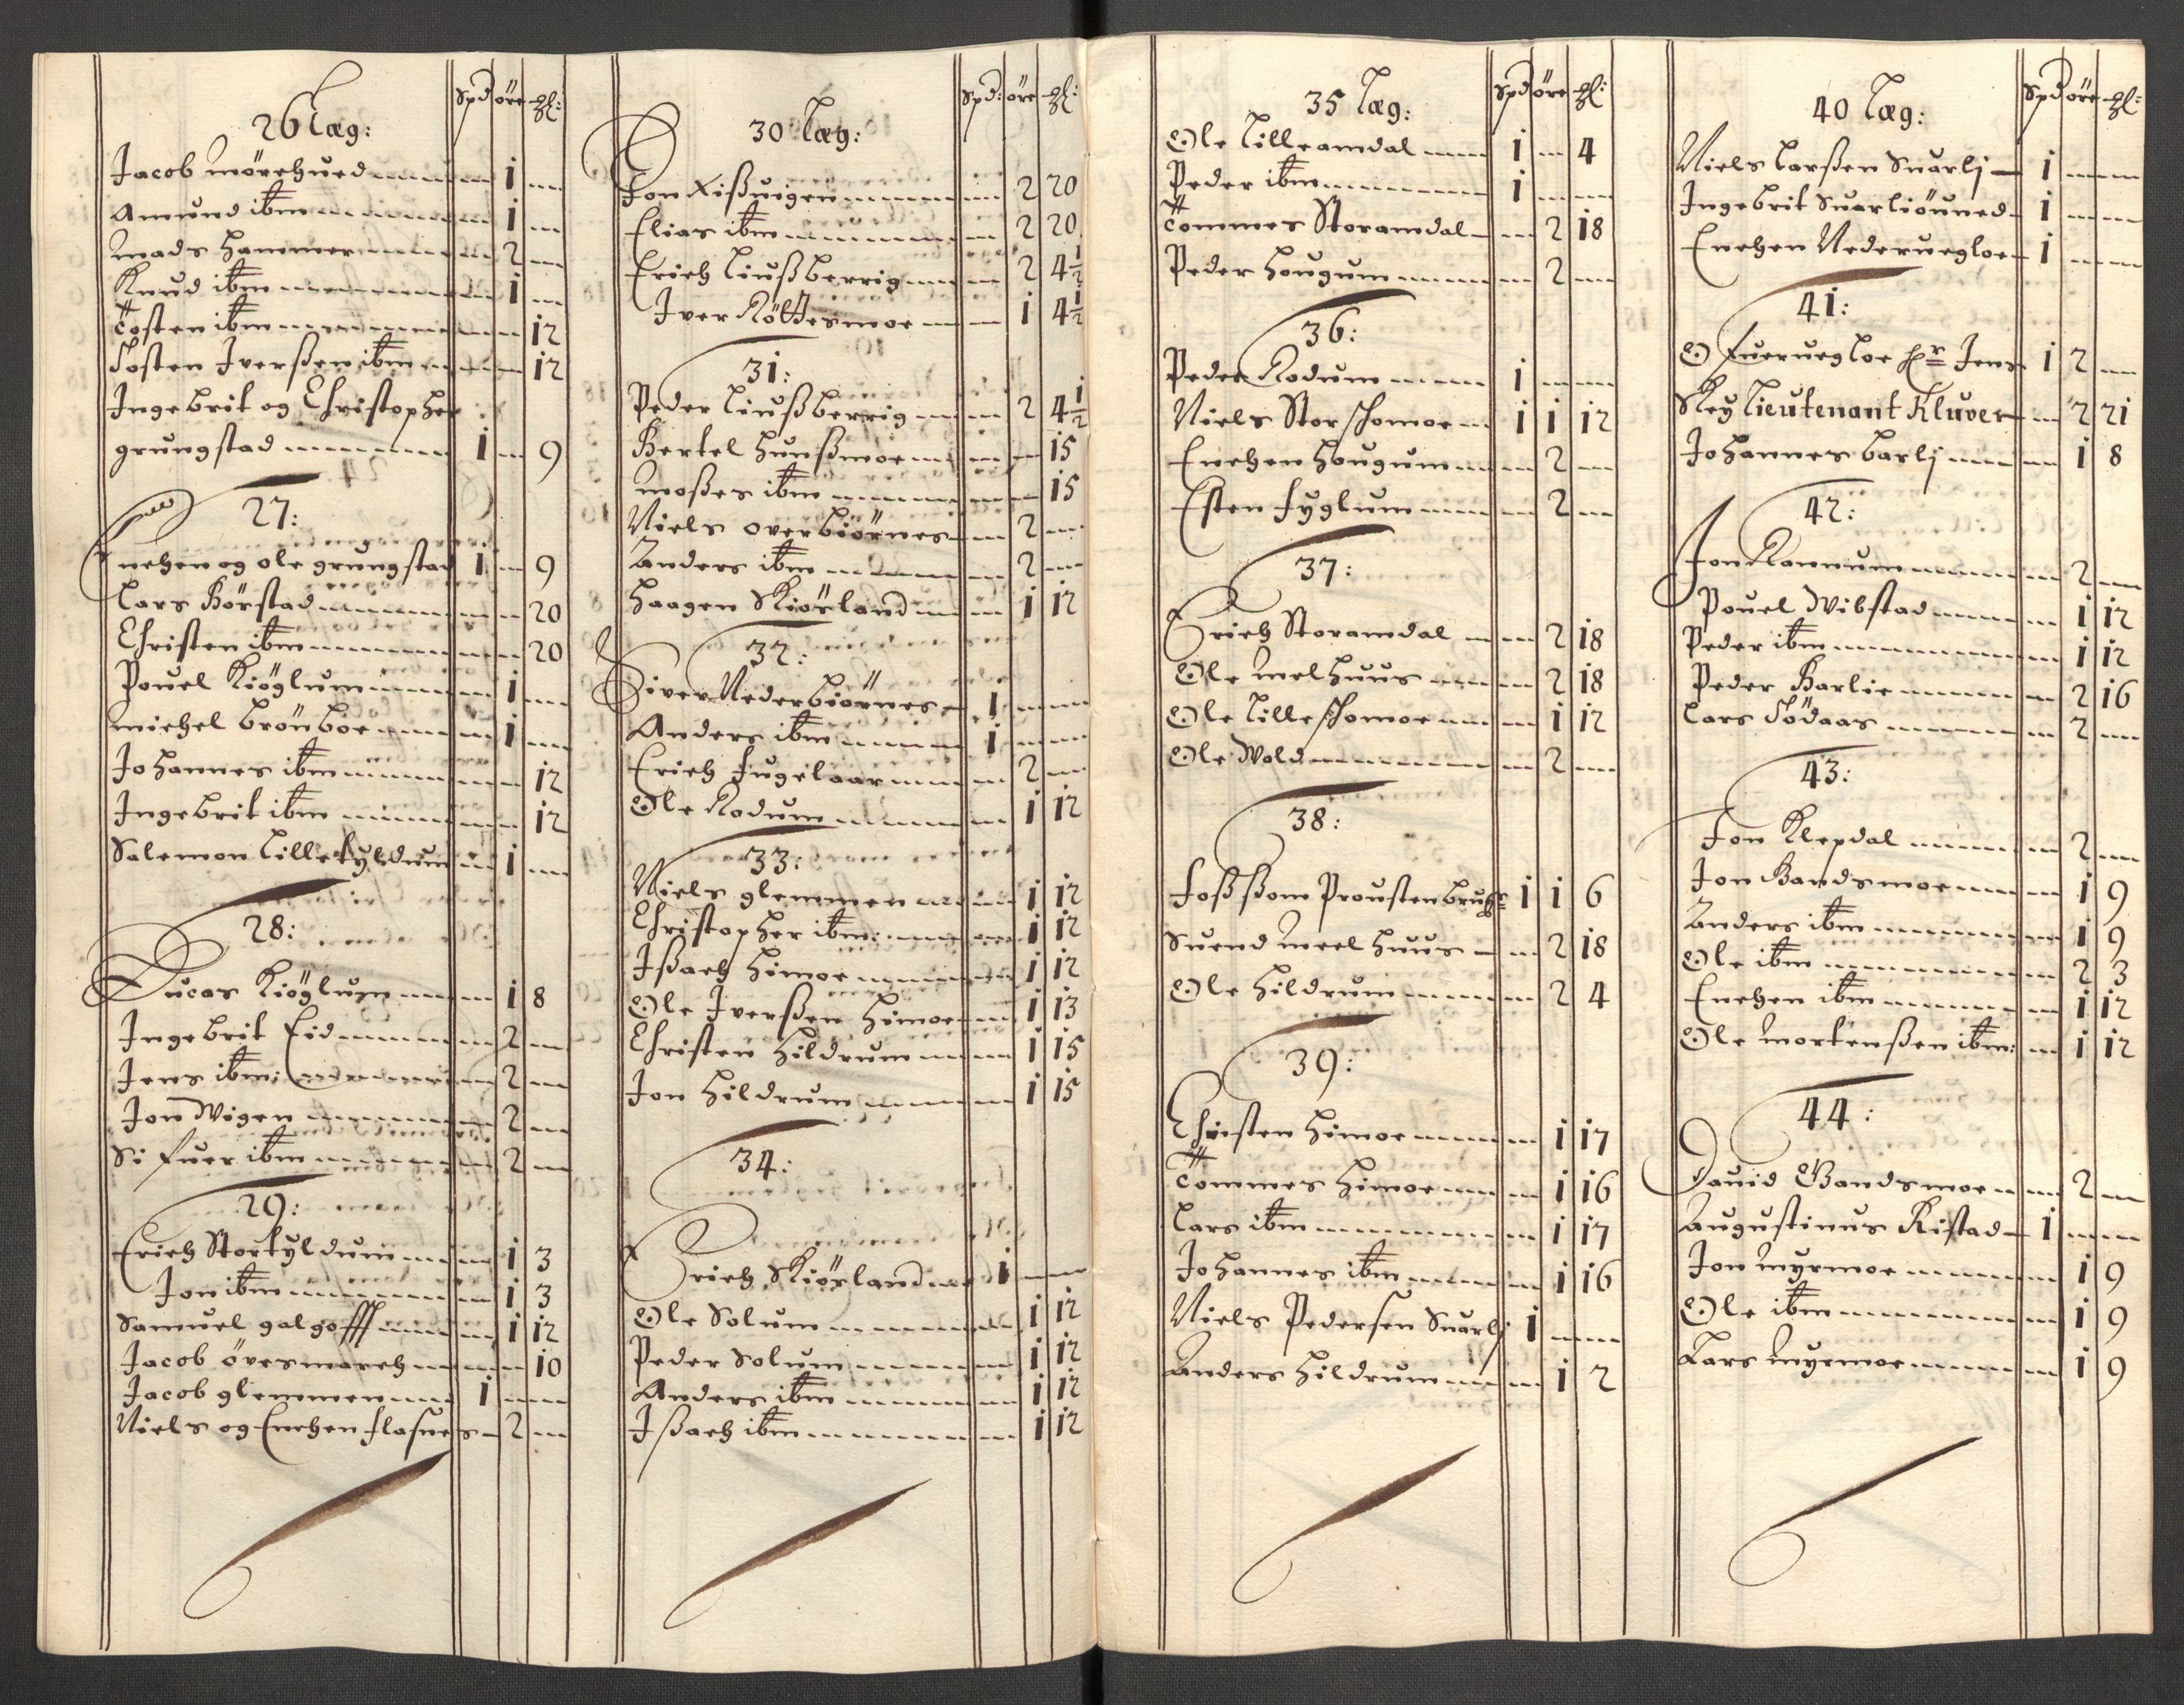 Spd öre ql:
26 Læg:
Jacob Mörchued 1
Amund ibm 1
Mads Hammer 2
Knud ibm 1
Tosten ibm 12
Tosten Iverßen ibm 12
Ingebrit og Christopher
grungstad 1 9
27:
Enchen og Ole grungstad 1 9
Lars Börstad 20
Christen ibm 20
Pouel Kiöglum 1
Michel Brönboe 1
Johannes ibm 12
Ingebrit ibm 12
Salemon Lilletyldum 1
28:
Lucas Kiöglum 1 8
Ingebrit Eid 2
Jens ibm: 2
Jon Wigen 2
Sifuer ibm 2
29:
Erich Stortyldum 1 3
Jon ibm 1 3
Samuel galgofff 1 12
Jacob övesmarch 10
Jacob glemmen 1
Niels og Enchen flasnes 2
Spd: öre ql:
30 Læg:
Jon Xißvigen 2 20
Elias ibm 2 20
Erich Liußberrig 2 4½
Iver Röttesmoe 1 4½
31:
Peder Liußberrig 2 4½
Bertel Hunßmoe 15
Moßes ibm 15
Niels overbiörnes 2
Anders ibm 2
Haagen Skiörland 1 12
32:
Siver Nederbiörnes 1
Anders ibm 1
Erich Fugelaar 2
Ole Rodum 1 12
33:
Niels glemmen 1 12
Christopher ibm: 1 12
Ißach Himoe 1 12
Ole Iverßen Himoe 1 13
Christen Hildrum 1 15
Jon Hildrum 1 15
34:
Erich Skiörland 1
Ole Solum 1 12
Peder Solum 1 12
Anders ibm 1 12
Ißach ibm 1 12
Spd öre ql:
35 Læg:
Ole Lilleamdal 1 4
Peder ibm 1
Tommes Storamdal 2 18
Peder Hougum 2
36:
Peder Rodum 1
Niels Storschomoe 1 1 12
Enchen Hougum 2
Esten Fyglum 2
37:
Erich Storamdal 2 18
Ole Melhuus 2 18
Ole Lilleschomoe 1 12
Ole Wold 2
38:
Foß ßom Prousten brugr 1 1 6
Suend Meelhuus 2 18
Ole Hildrum 2 4
39:
Christen Himoe 1 17
Tommes Himoe 1 16
Lars ibm 1 17
Johannes ibm 1 16
Niels Pedersen Suarlj 1
Anders Hildrum 1 2
Spd öre ql:
40 Læg:
Niels Larßen Suarlj 1
Ingebrit Suarliöuned 1
Enchen Nederuegloe 1
41:
Ofueruegloe Hr Jens 1 2
Skey Lieutenant Kluver 2 21
Johannes Barlj 1 8
42:
Jon Rannum 2
Pouel Wibstad 1 12
Peder ibm 1 12
Peder Barlie 2 16
Lars Södaas 2
43:
Jon Klepdal 2
Jon Bandsmoe 1 9
Anders ibm 1 9
Ole ibm 2 3
Enchen ibm 1 12
Ole Mortenßen ibm: 1 12
44:
Dauid Bandsmoe 2
Augustinus Kistad 1
Jon Myrmoe 1 9
Ole ibm 1 9
Lars Myrmoe 1 9